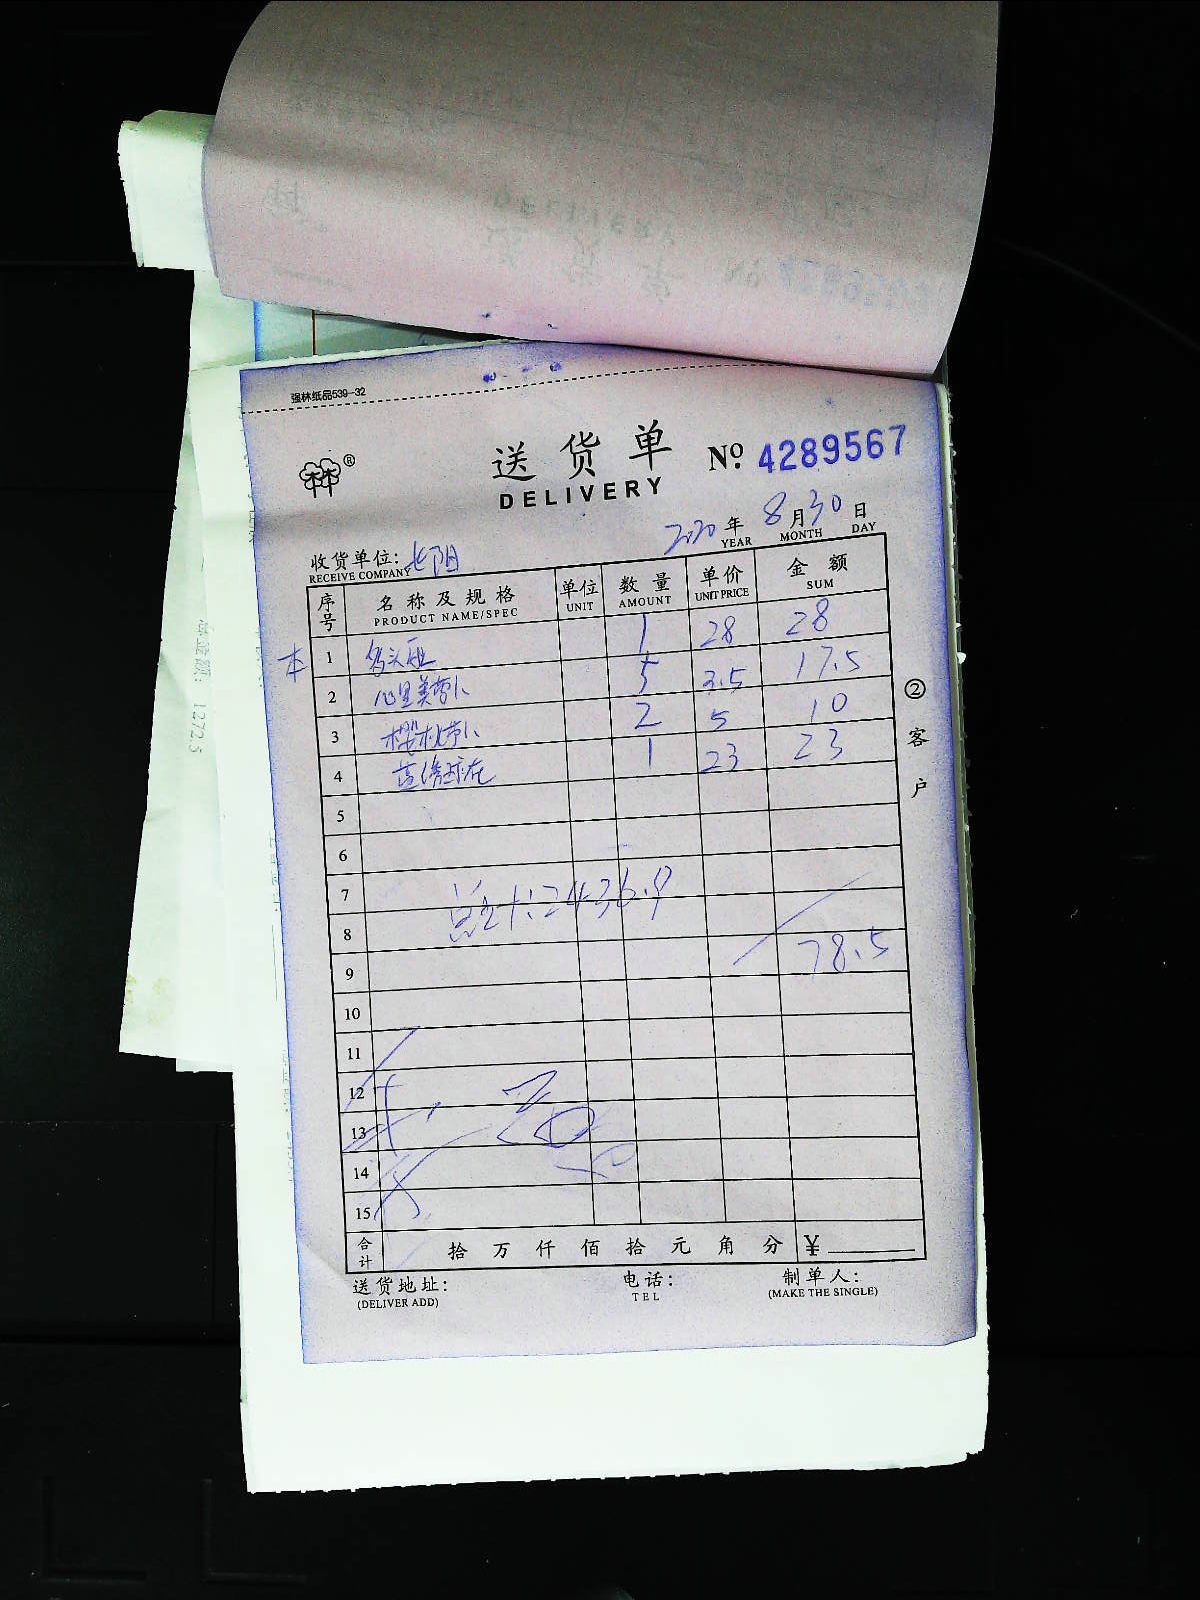 强林纸品539-32
®
送货单 Nº. 4289567
DELIVERY
2020年 8月30日
YEAR MONTH DAY
收货单位:
RECEIVE COMPANY
序号 名称及规格 单位 数量 单价 金额
PRODUCT NAME/SPEC UNIT AMOUNT UNIT PRICE SUM
本 1 1 28 28
2 心里美萝卜 5 3.5 17.5
3 樱桃萝卜 2 5 10
4 1 23 23
5
6
7
总计:2436.9
8
9 78.5
10
11
12
13
14
15
合计 拾 万 仟 佰 拾 元 角 分 ¥
送货地址: 电话: 制单人:
(DELIVER ADD) TEL (MAKE THE SINGLE)
②客户
总金额: 1272.5